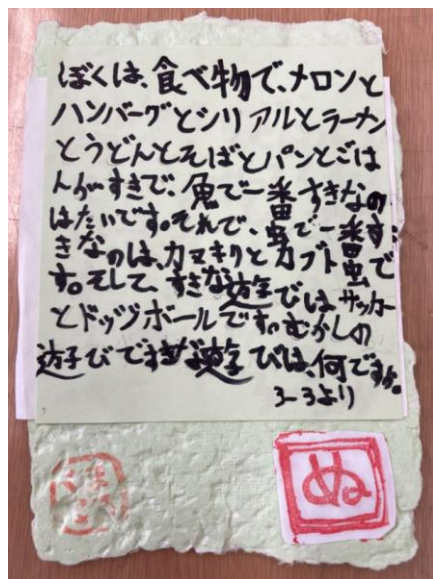 ぼくは、食べ物で、メロンと
ハンバーグとシリアルとラーメン
とうどんとそばとパンとごは
んがすきで、魚で一番すきなの
はたいです。それで、虫で一番す
きなのは、カマキリとカブト虫で
す。そして、すきな遊びは、サッカー
とドッヂボールです。むかしの
遊びですきな遊びは、何ですか。
3-3より
ぬ